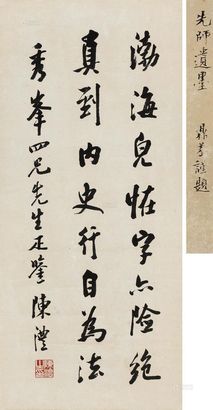 先師遺墨
鼎芬謹題
渤海皃恠字亦險絶
真到内史行自為法
秀峯四兄先生正鑒 陳澧